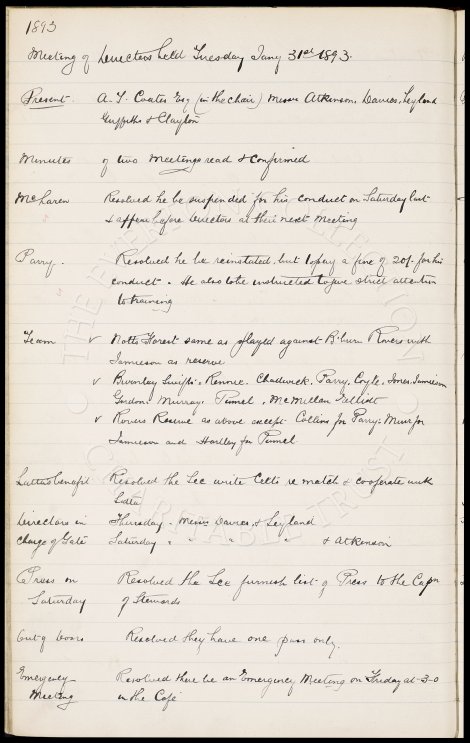 1893
Meeting of Directors held Tuesday Jany 31st 1893.
Present. A. T. Coates Esq (in the chair) Messrs Atkinson, Davies, Leyland
Griffiths & Clayton
Minutes of two Meetings read & confirmed
McLaren Resolved he be suspended for his conduct on Saturday last
& appear before Directors at their next Meeting
Parry. Resolved he be reinstated, but to pay a fine of 20/- for his
conduct. He also to be instructed to give strict attention
to training
Team v Notts Forest same as played against B'burn Rovers with
Jamieson as reserve
v Burnley Swifts. Rennie. Chadwick. Parry. Coyle. Jones. Jamieson
Gordon. Murray. McMillan Elliott
v Rovers Reserve as above except Collins for Parry. Muir for
Jamieson and Hartley for
Latta's benefit Resolved the Sec write Celts re match & cooperate with
Latta
Directors in Thursday - Messrs Davies & Leyland
Charge of Gate Saturday " " " " & Atkinson
Press on Resolved the Sec furnish list of Press to the Capn
Saturday of Stewards
Out of Doors Resolved they have one pass only.
Emergency Resolved there be an Emergency Meeting on Friday at 3-0
Meeting in the Café
THE EVERTON COLLECTION
CHARITABLE TRUST